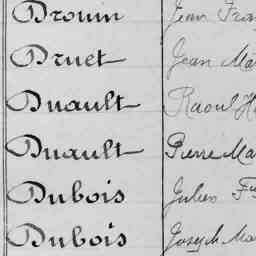 Drouin Jean
Druet Jean
Duault Raoul
Duault Pierre
Dubois Jules
Dubois Joseph